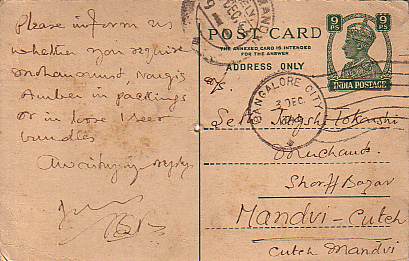 Please inform us
whether you require
Nargis
Amber in packings
or in loose 1 seer
bundles
Awaiting reply
POST CARD
THE ANNEXED CARD IS INTENDED
FOR THE ANSWER
ADDRESS ONLY
9 PS 9 PS
INDIA POSTAGE
BANGALORE CITY
3 DEC
Seth Nagshi Tokarshi
Shroff Bazar
Mandvi - Cutch
Cutch Mandvi